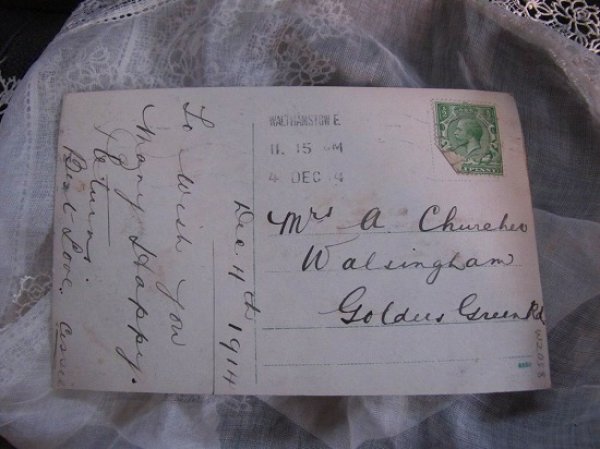 To wish you
Many Happy.
Returns
Best Love. Cissie
Dec 4th 1914
WALTHAMSTOW E.
11. 15 AM
4 DEC 14
Mrs A Churcher
Walsingham
Golders Green Rd